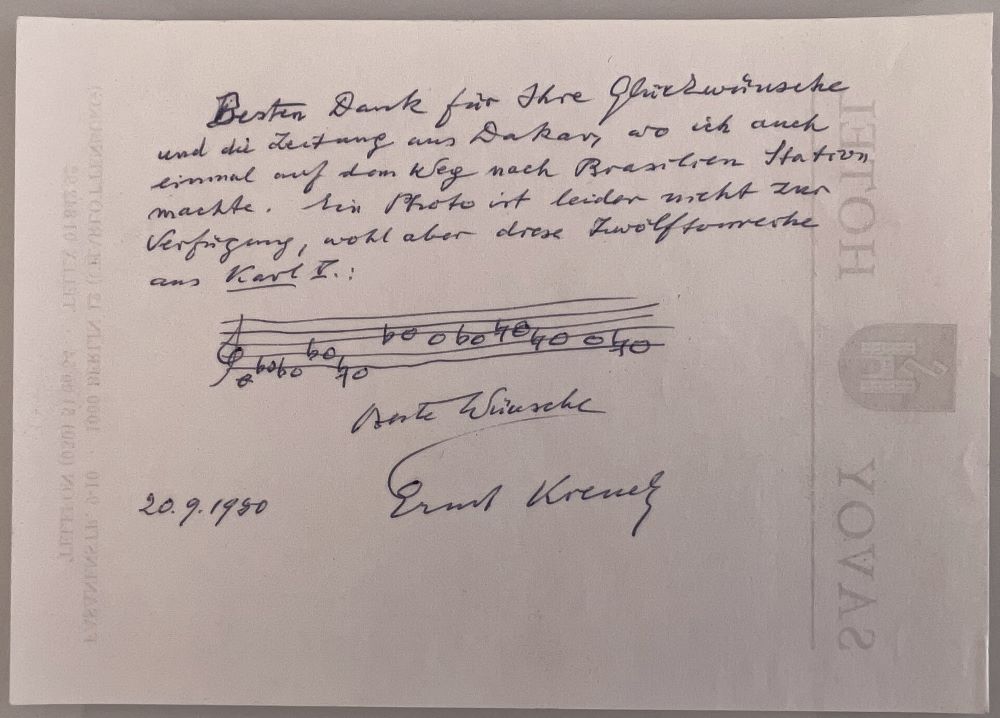 Besten Dank für Ihre Glückwünsche
und die Zeitung aus Dakar, wo ich auch
einmal auf dem Weg nach Brasilien Station
machte. Ein Photo ist leider nicht zur
Verfügung, wohl aber diese Zwölftonreihe
aus Karl V.:
Beste Wünsche
20.9.1980
Ernst Krenek
HOTEL SAVOY
FASANENSTR. 9-10 · 1000 BERLIN 12 (CHARLOTTENBURG)
TELEFON (030)